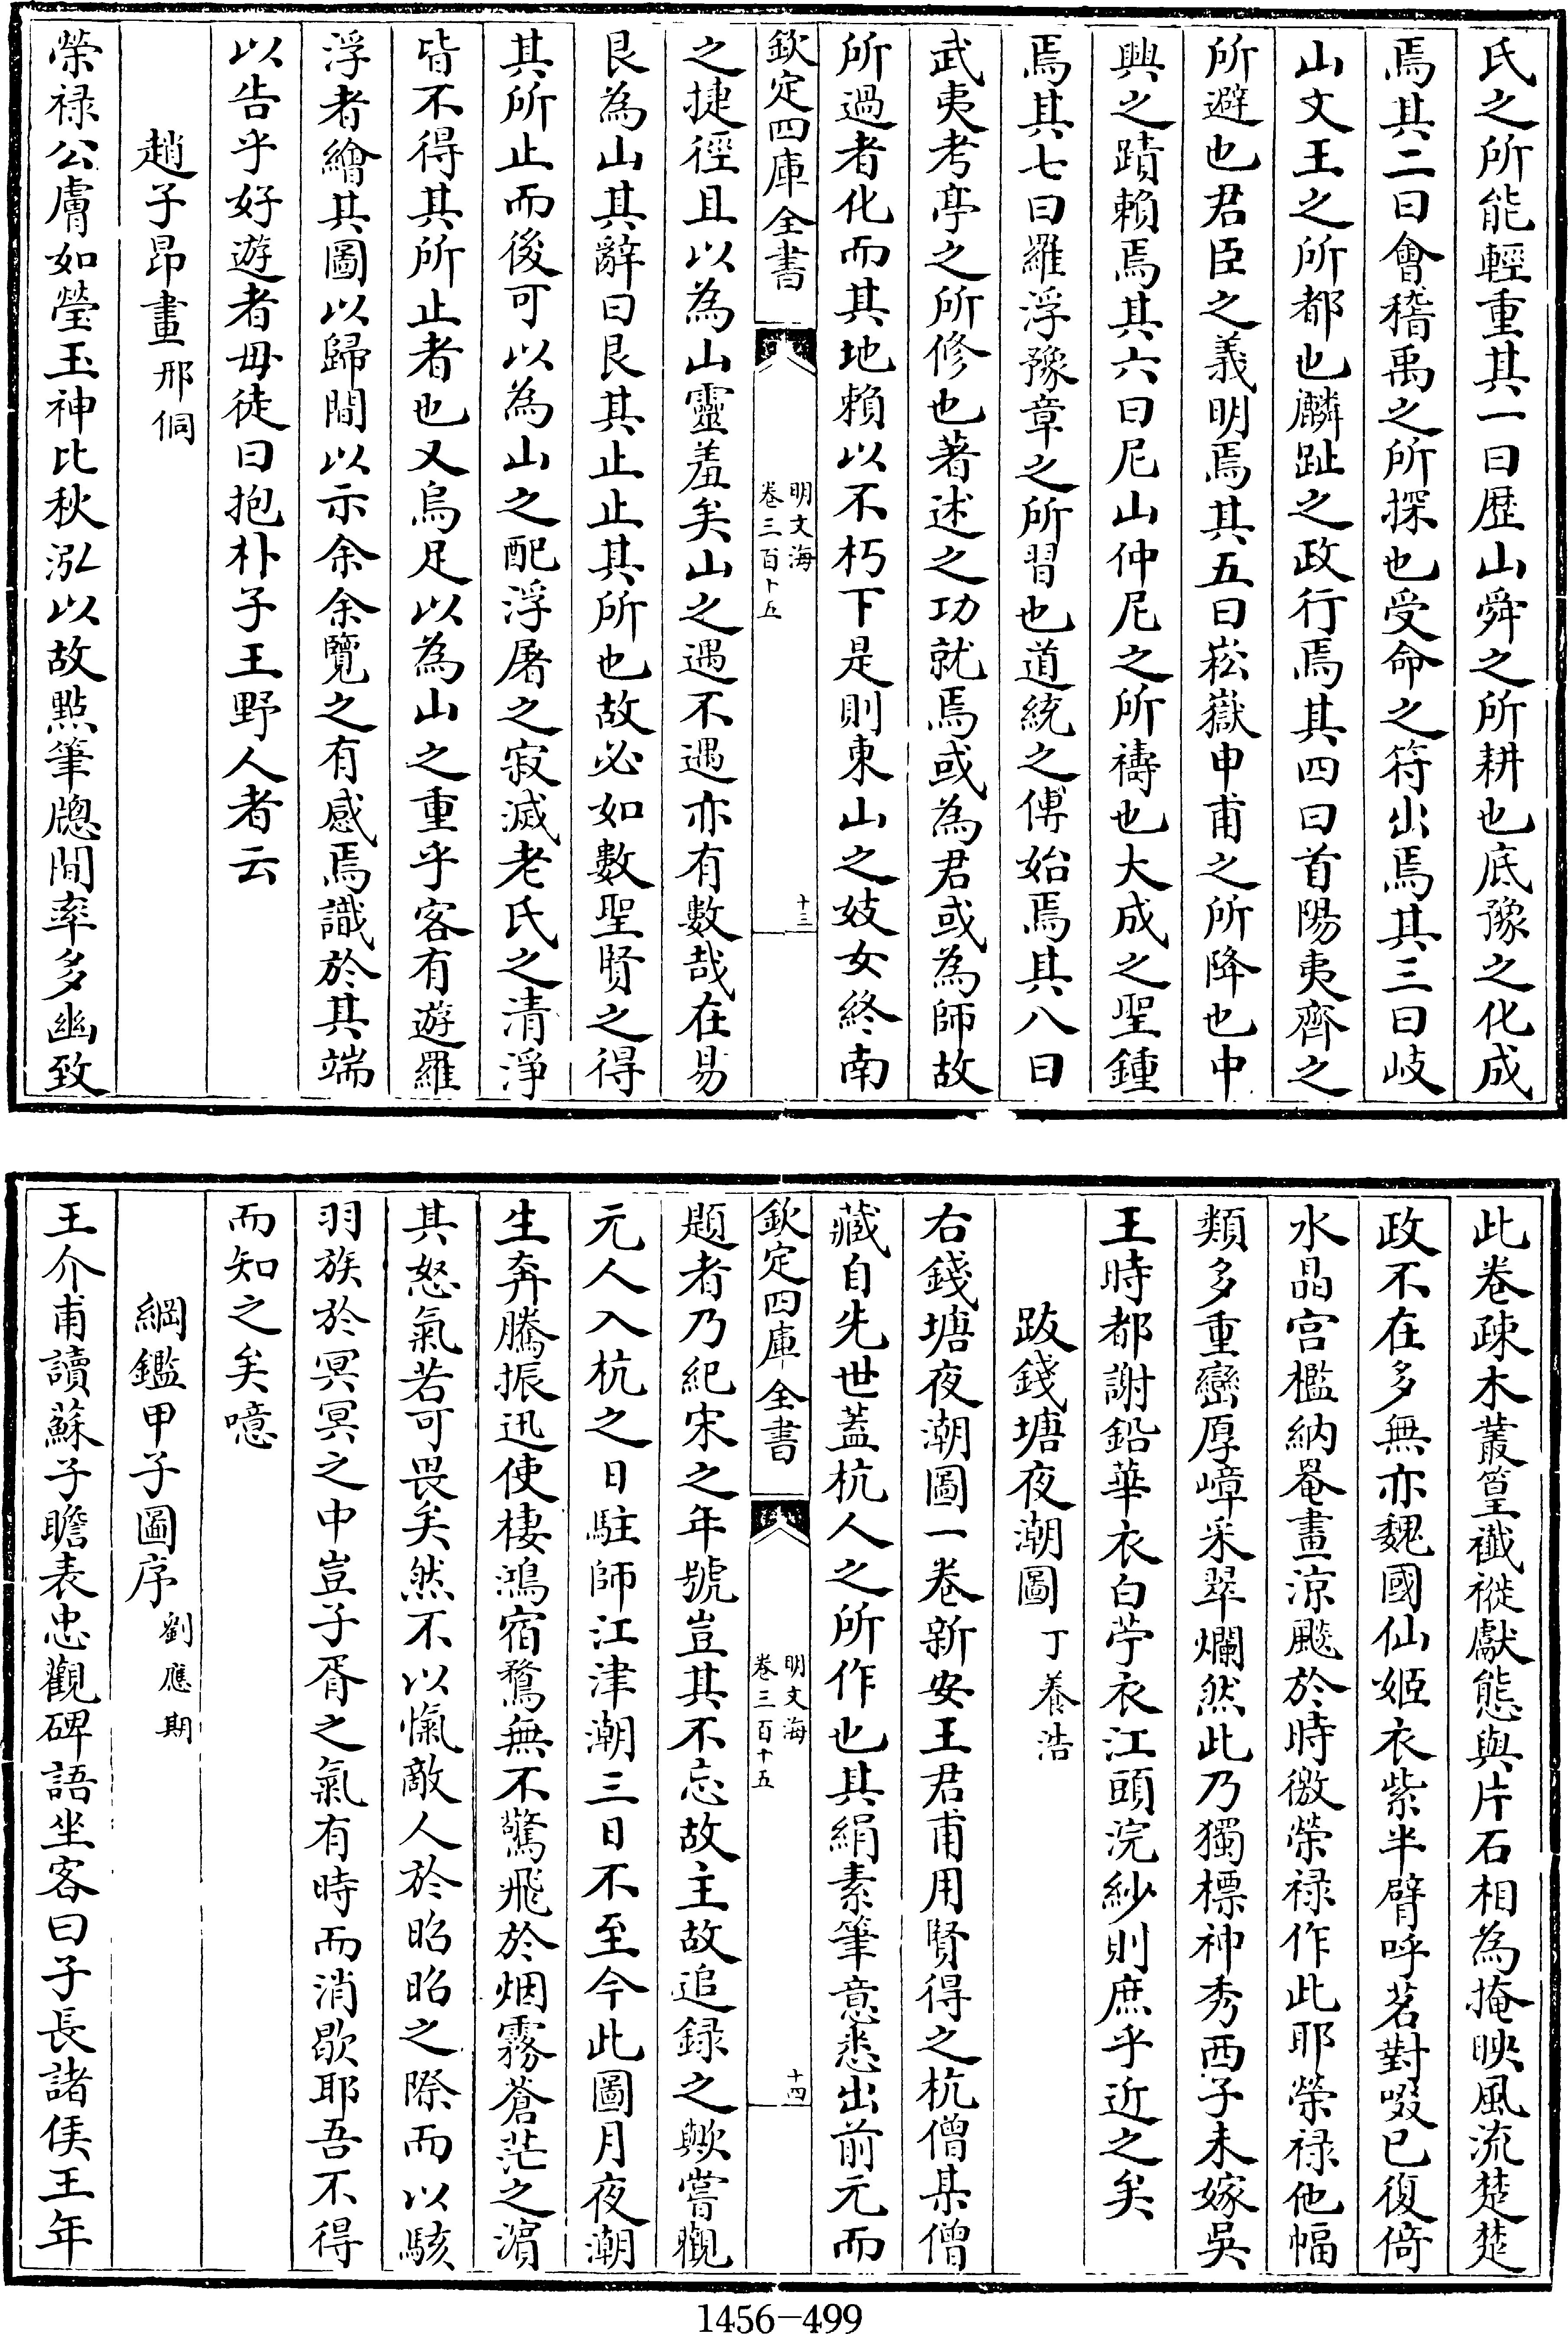 氏之所能輕重其一曰歴山舜之所耕也底豫之化成
焉其二曰會稽禹之所探也受命之符出焉其三曰岐
山文王之所都也麟趾之政行焉其四曰首陽夷齊之
所避也君臣之義明焉其五曰崧嶽申甫之所降也中
興之蹟賴焉其六曰尼山仲尼之所禱也大成之聖鍾
焉其七曰羅浮豫章之所習也道統之傳始焉其八曰
武夷考亭之所修也著述之功就焉或為君或為師故
所過者化而其地賴以不朽下是則東山之妓女終南
欽定四庫全書
明文海
卷三百十五
十三
之捷徑且以為山靈羞矣山之遇不遇亦有數哉在易
艮為山其辭曰艮其止止其所也故必如數聖賢之得
其所止而後可以為山之配浮屠之寂滅老氏之清淨
皆不得其所止者也又烏足以為山之重乎客有遊羅
浮者繪其圖以歸間以示余余覽之有感焉識於其端
以告乎好遊者毋徒曰抱朴子王野人者云
趙子昂畫 邢侗
榮禄公膚如瑩玉神比秋泓以故㸃筆牕間率多幽致
此卷疎木叢篁襳褷獻態與片石相為掩映風流楚楚
政不在多無亦魏國仙姬衣紫半臂呼茗對啜已復倚
水晶宫檻納罨畫涼颸於時微榮禄作此耶榮禄他幅
類多重巒厚嶂采翠爛然此乃獨標神秀西子未嫁吳
王時都謝鉛華衣白苧衣江頭浣紗則庶乎近之矣
跋錢塘夜潮圖 丁養浩
右錢塘夜潮圖一卷新安王君甫用賢得之杭僧某僧
藏自先世蓋杭人之所作也其絹素筆意悉出前元而
欽定四庫全書
明文海
卷三百十五
十四
題者乃紀宋之年號豈其不忘故主故追録之歟嘗觀
元人入杭之日駐師江津潮三日不至今此圖月夜潮
生奔騰振迅使棲鴻宿鶩無不驚飛於烟霧蒼茫之濵
其怒氣若可畏矣然不以愾敵人於昭昭之際而以駭
羽族於冥冥之中豈子胥之氣有時而消歇耶吾不得
而知之矣噫
綱鑑甲子圖序 劉應期
王介甫讀蘇子瞻表忠觀碑語坐客曰子長諸侯王年
1456-499